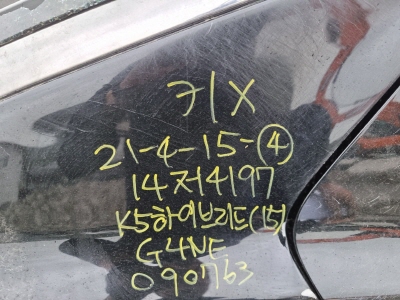 키X
21-4-15-④
14저4197
K5하이브리드(15)
G4NE
090763